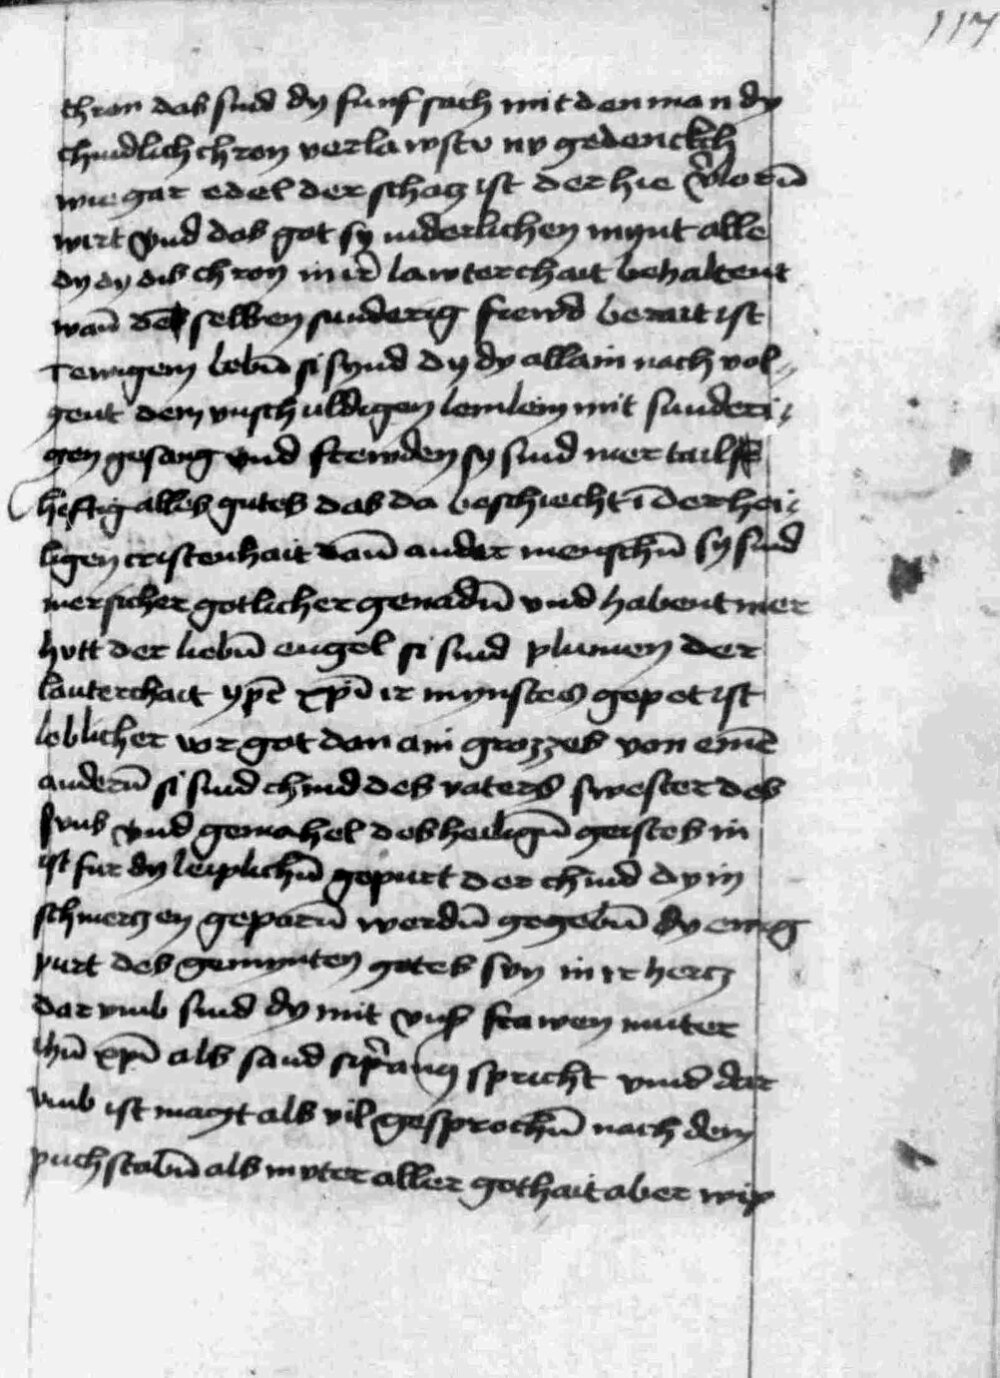 117
chron das sind dy funf sach mit den man dy
chindlich chron verlawst v nv gedenckch
wie gar edel der schatz ist der hie v͛lorn̄
wirt vnd das got sy inderlichen mynt alle
dy dy dis chron in ir͛ lawterchait behaltent
wan̄ den selben sunderig frewd berait ist
ewigem lebn̄ si synd dy dy allain nach vol„
gent dem vnschuldigen lemlein mit sunderi„
gen gesang vnd frewden sy sind mer tail
heftig alles gutes das da beschiecht ī der hei„
ligen cristenhait dan̄ ander menschn̄ sy sind
mer sicher gotlicher genadn̄ vnd habent mer
hvtt der liebn̄ engel si sind plumen der
lauterchait xp̄i ir mynstes gepet ist
loblicher vor got dan ain grozzes von em̄e
andern̄ si sind chind des vaters swester des
svns vnd gemahel des heilign̄ geistes in
ist fur dy leiplichn̄ gepurt der chind dy in
schmerczen geporn̄ werdn̄ gegebn̄ dy ewig
purt des gemynten gotes svn in ir hercz
dar vmb sind dy mit vns frawen muter
ihū xp̄i als sand cip͛ang spricht vnd dar
vmb ist magt als vil gesprochn̄ nach dem
puchstabn̄ als mvter aller gothait aber wip